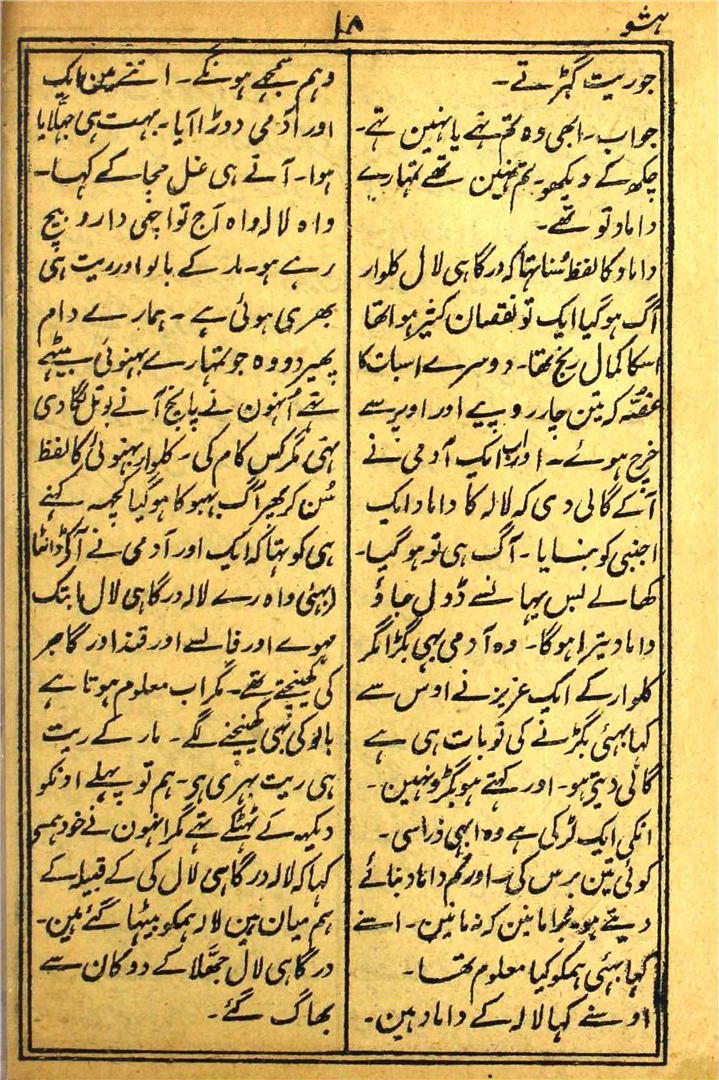 ہشو
۱۸
جوریت گہڑتے۔
جواب۔ اجی وہ تم تہے یا نہین تہے۔
چکھ کے دیکھو۔ تم نہین تھے تمہارے
داماد تو تھے۔
داماد کا لفظ سننا تہا کہ درگاہی لال کلوار
آگ ہو گیا ایک تو نقصان کثیر ہوا تھا
اسکا کمال رنج تھا۔ دوسرے اسبات کا
غصہ کہ تین چار روپیے اور اوپر سے
خرچ ہوئے۔ اور اب ایک آدمی نے
آکے گالی دی کہ لالہ کا داماد ایک
اجنبی کو بنایا۔ آگ ہی تو ہو گیا۔
کھالے بس یہانسے ڈول جاؤ
داماد تیرا ہوگا۔ وہ آدمی بہی بگڑا مگر
کلوار کے ایک عزیز نے اوس سے
کہا بہئی بگڑنے کی تو بات ہی ہے
گالی دیتے ہو۔ اور کہتے ہو بگڑو نہین۔
انکی ایک لڑکی ہے وہ ابہی ذراسی۔
کوئی تین برس کی۔ اور تم داماد بنائے
دیتے ہو۔ برا مانین کہ نہ مانین۔ اسنے
کہا بہئی ہمکو کیا معلوم تھا۔
اوسنے کہا لالہ کے داماد ہین۔
وہم سمجھے ہونگے۔ اتنے مین ایک
اور آدمی دوڑا آیا۔ بہت ہی جہلایا
ہوا۔ آتے ہی غل مچا کے کہا۔
واہ لالہ واہ آج تو اچھی دارو بیچ
رہے ہو۔ مار کے بالو اور ریت ہی
بھری ہوئی ہے۔ ہمارے دام
پھیر دو وہ جو تمہارے بہنوئی بیٹہے
تہے اُنہون نے پانچ آنے بوتل لگا دی
تہی مگر کس کام کی۔ کلوار بہنوئی کا لفظ
سُن کر پھر آگ بہبوکا ہو گیا کچہہ کہنے
ہی کو تہا کہ ایک اور آدمی نے آکر ڈانٹا
ابہئی واہ رے لالہ درگاہی لال ابتک
مہوے اور فالسے اور قند اور گاجر
کی کھینچتے تھے۔ مگر اب معلوم ہوتا ہے
بالو کی بہی کھینچنے لگے۔ مار کے ریت
ہی ریت بہری ہی۔ ہم تو پہلے اونکو
دیکہہ کے ٹہٹکے تہے مگر انہون نے خود ہمسے
کہا کہ لالہ درگاہی لال کی کے قبیلہ کے
ہم میان ہین لالہ ہمکو بیٹہا گئے ہین۔
درگاہی لال جھلا کے دوکان سے
بھاگ گئے۔